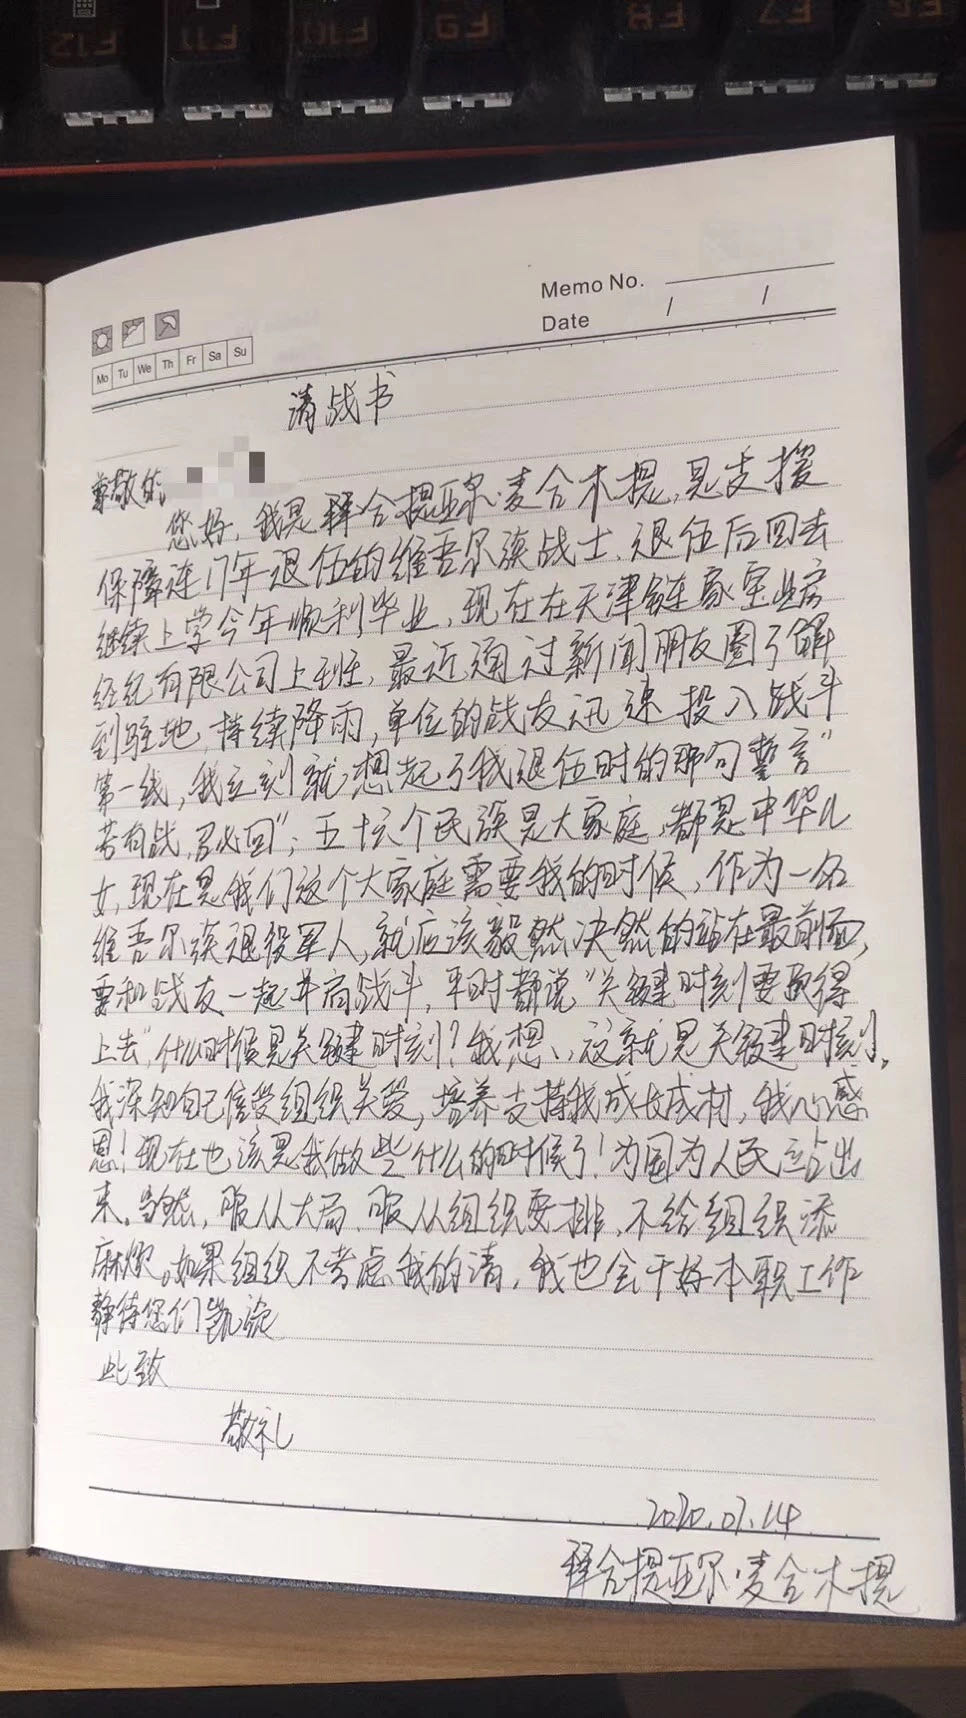 F12 F11 F10 F9 F8 F7 F6
Memo No.
Date / /
Mo Tu We Th Fr Sa Su
请战书
尊敬的
您好，我是拜合提亚尔·麦合木提，是支援
保障连17年退伍的维吾尔族战士，退伍后回去
继续上学今年顺利毕业，现在在天津链家宝业房
经纪有限公司上班，最近通过新闻朋友圈了解
到驻地，持续降雨，单位的战友迅速投入战斗
第一线，我立刻就想起了我退伍时的那句誓言“
若有战，召必回”；五十六个民族是大家庭，都是中华儿
女，现在是我们这个大家庭需要我的时候，作为一名
维吾尔族退役军人，就应该毅然决然的站在最前面，
要和战友一起并肩战斗，平时都说“关键时刻要顶得
上去”，什么时候是关键时刻？我想、这就是关键时刻。
我深知自己倍受组织关爱，培养支持我成长成材，我心感
恩！现在也该是我做些什么的时候了！为国为人民站出
来。当然，服从大局，服从组织安排，不给组织添
麻烦。如果组织不考虑我的请，我也会干好本职工作
静待您们凯旋
此致
敬礼
2020.07.14
拜合提亚尔·麦合木提